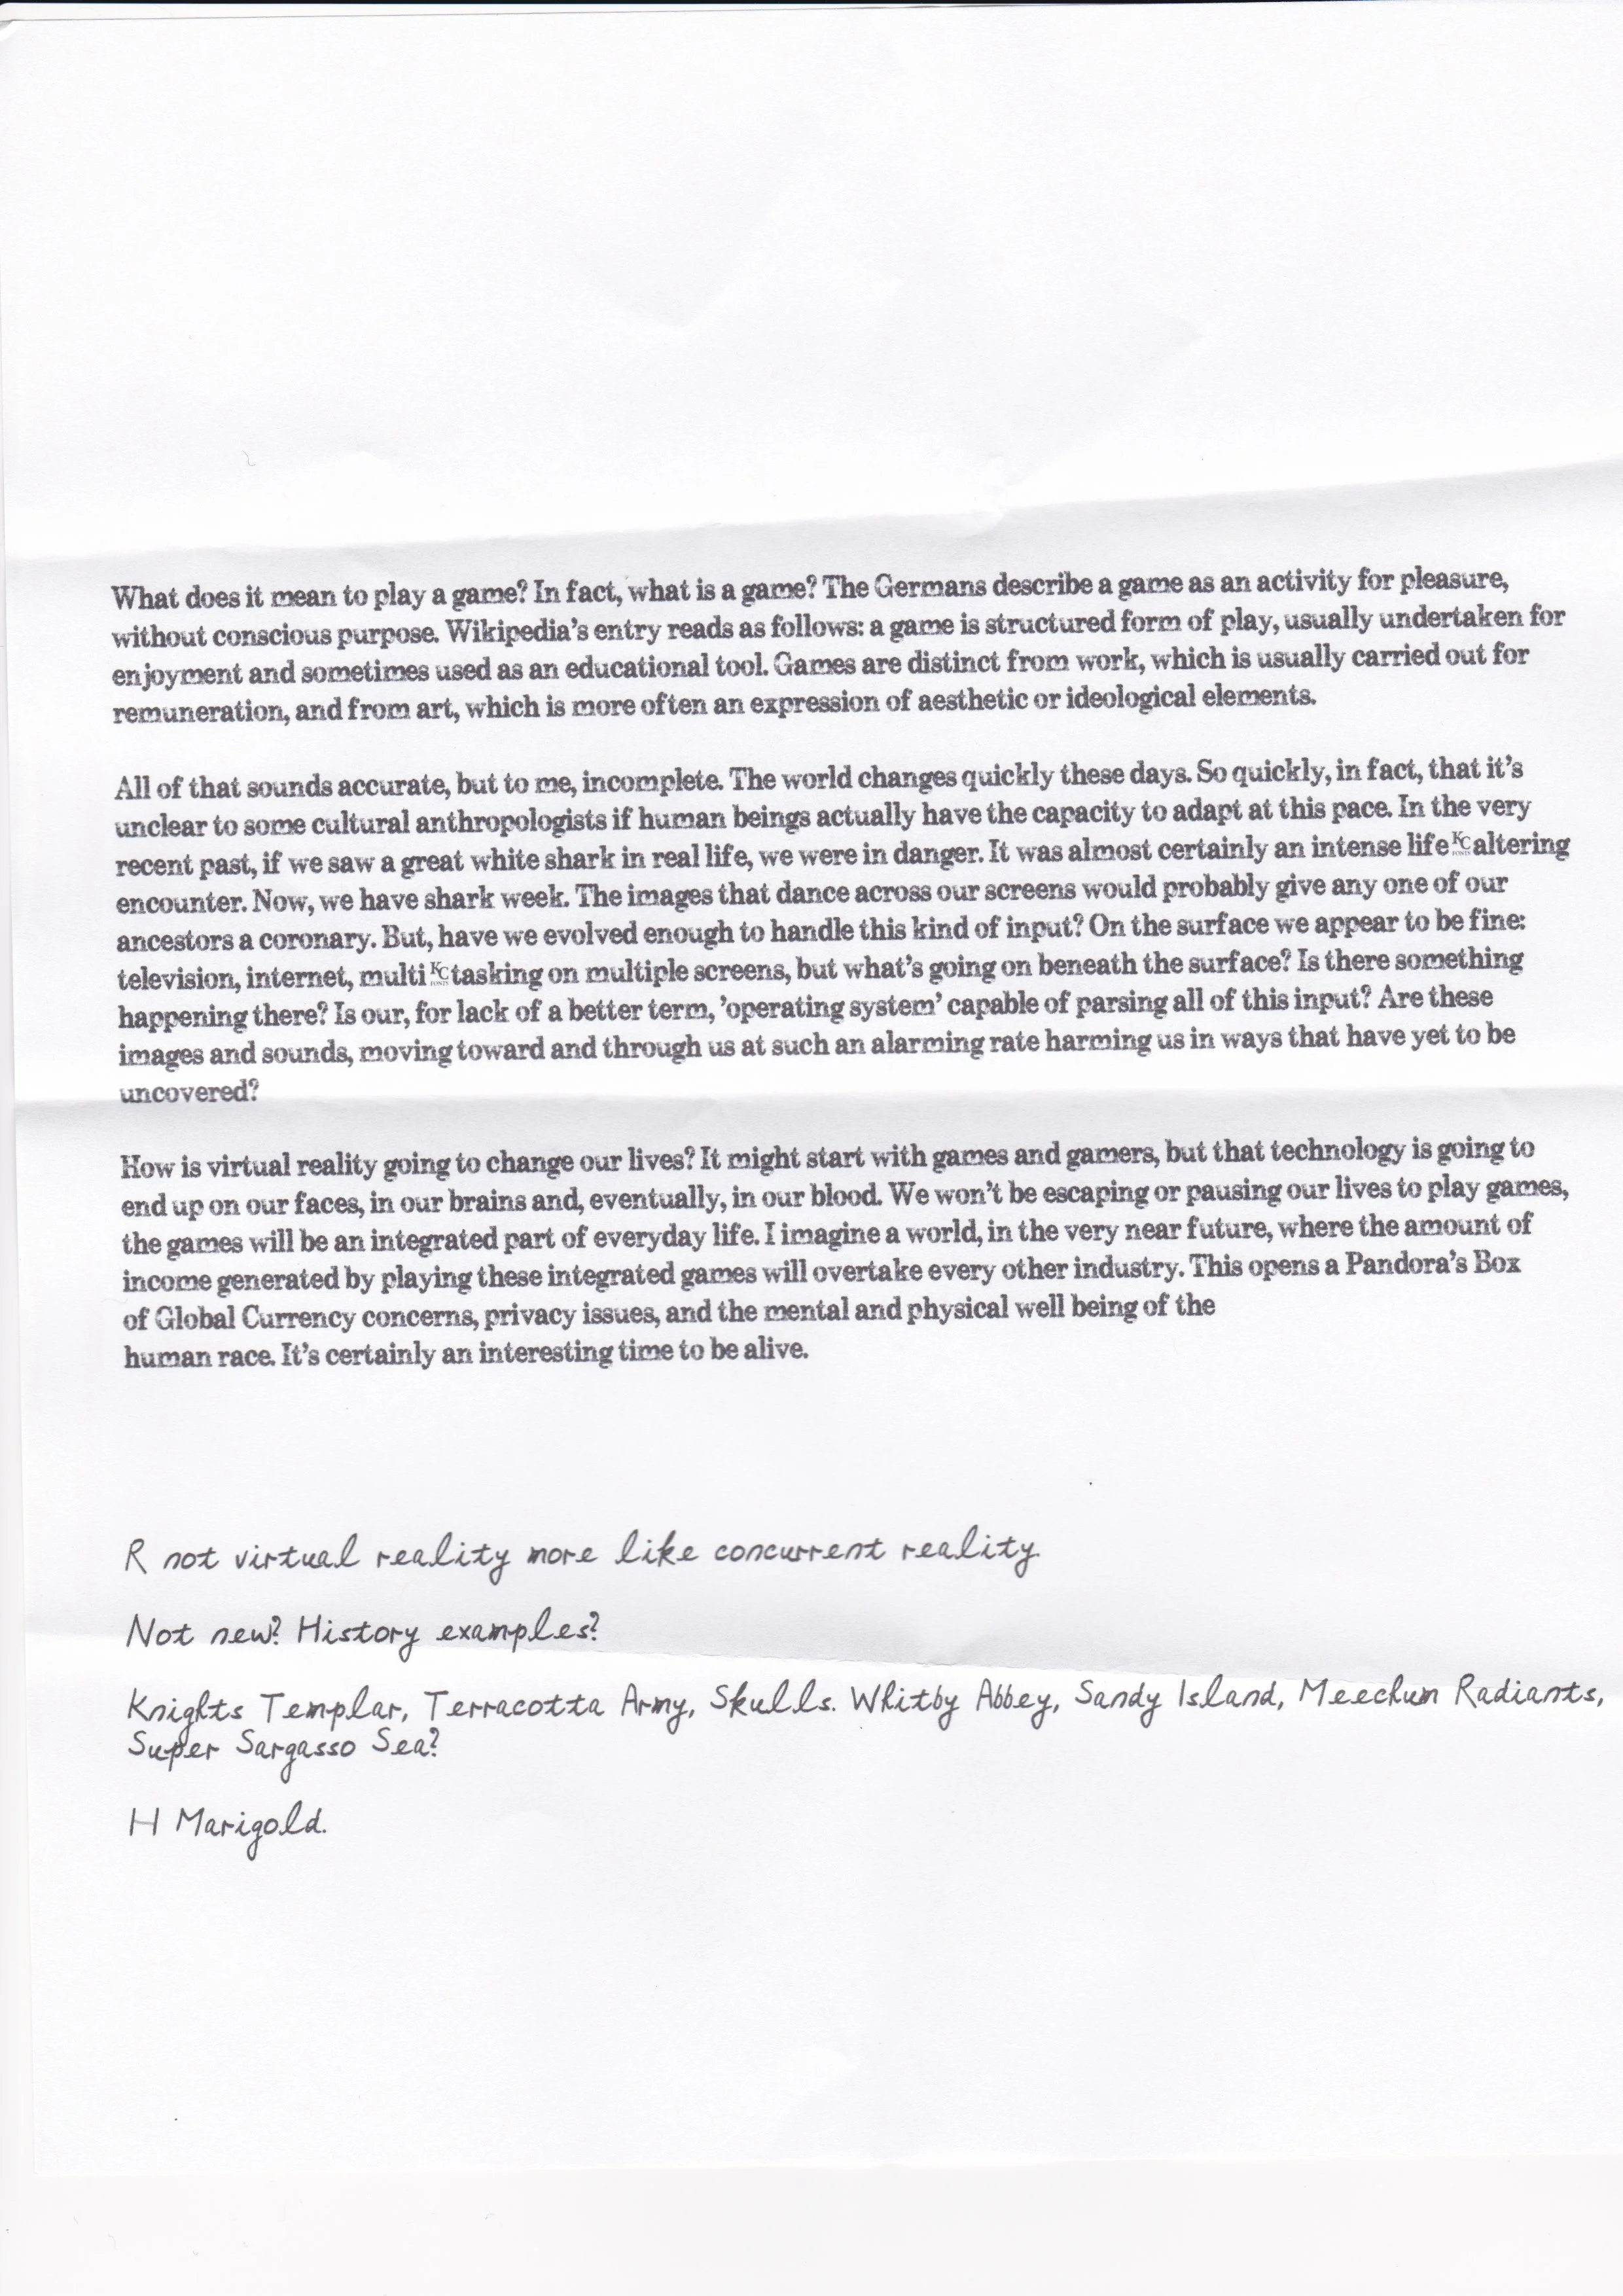 What does it mean to play a game? In fact, what is a game? The Germans describe a game as an activity for pleasure,
without conscious purpose. Wikipedia's entry reads as follows: a game is structured form of play, usually undertaken for
enjoyment and sometimes used as an educational tool. Games are distinct from work, which is usually carried out for
remuneration, and from art, which is more often an expression of aesthetic or ideological elements.
All of that sounds accurate, but to me, incomplete. The world changes quickly these days. So quickly, in fact, that it's
unclear to some cultural anthropologists if human beings actually have the capacity to adapt at this pace. In the very
recent past, if we saw a great white shark in real life, we were in danger. It was almost certainly an intense life KC altering
encounter. Now, we have shark week. The images that dance across our screens would probably give any one of our
ancestors a coronary. But, have we evolved enough to handle this kind of input? On the surface we appear to be fine:
television, internet, multi KC tasking on multiple screens, but what's going on beneath the surface? Is there something
happening there? Is our, for lack of a better term, 'operating system' capable of parsing all of this input? Are these
images and sounds, moving toward and through us at such an alarming rate harming us in ways that have yet to be
uncovered?
How is virtual reality going to change our lives? It might start with games and gamers, but that technology is going to
end up on our faces, in our brains and, eventually, in our blood. We won't be escaping or pausing our lives to play games,
the games will be an integrated part of everyday life. I imagine a world, in the very near future, where the amount of
income generated by playing these integrated games will overtake every other industry. This opens a Pandora's Box
of Global Currency concerns, privacy issues, and the mental and physical well being of the
human race. It's certainly an interesting time to be alive.
R not virtual reality more like concurrent reality.
Not new? History examples?
Knights Templar, Terracotta Army, Skulls. Whitby Abbey, Sandy Island, Meechum Radiants,
Super Sargasso Sea?
H Marigold.